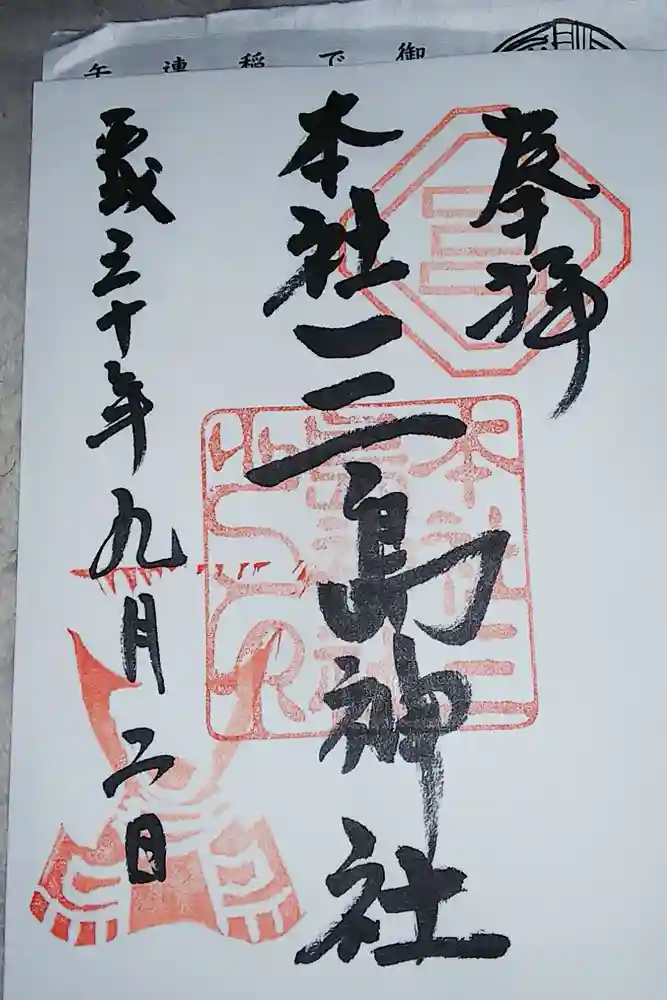 奉拝
本社三島神社
平成三十年九月二日
本社三